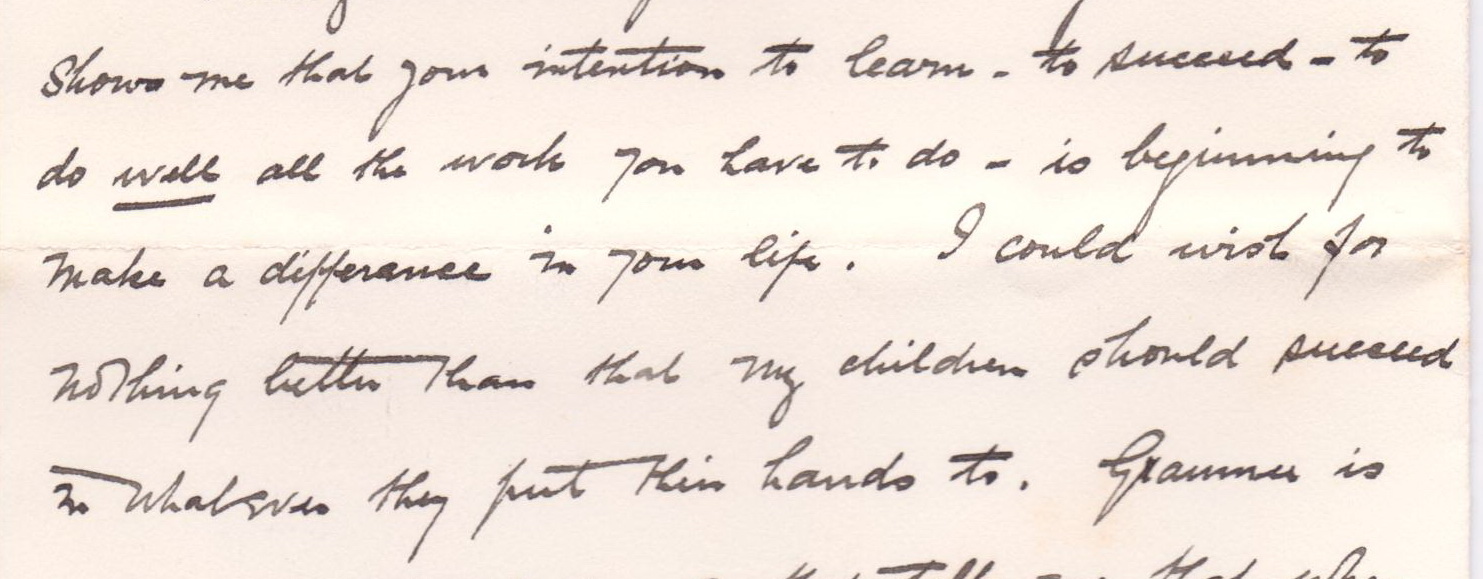 Shows me that your intention to learn - to succeed - to
do well all the work you have to do - is beginning to
make a differance in your life. I could wish for
nothing better than that my children should succeed
in whatever they put their hands to. Grammer is
tell that